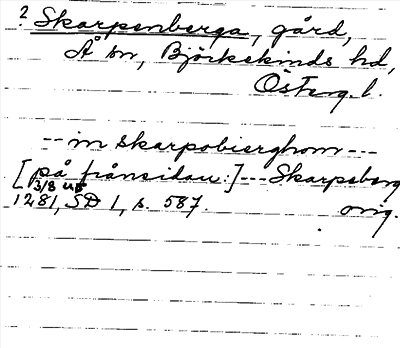 ? Skarpenberga, gård,
Å sn, Björkekinds hd,
Österg. l.
--- in skarpobierghom ---
[på frånsidan:] --- Skarpsberg
3/8 us
1281, SD 1, s. 587. orig.